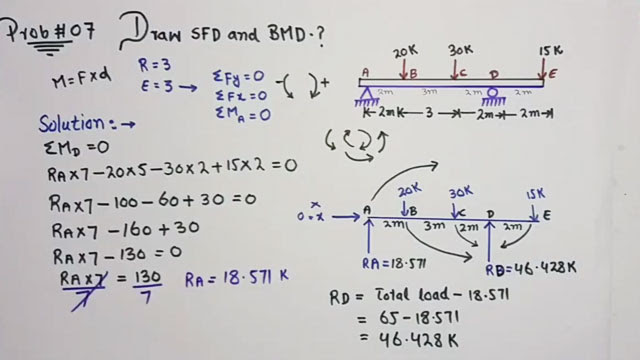 Prob #07 Draw SFD and BMD.?
M=F×d
R=3
E=3 → ΣFy=0
ΣFx=0
ΣMA=0
+
20K 30K 15K
A B C D E
2m 3m 2m 2m
2m 3 2m 2m
Solution:→
ΣMD=0
RA×7-20×5-30×2+15×2=0
RA×7-100-60+30=0
RA×7-160+30
RA×7-130=0
RA×7/7 = 130/7 RA=18.571 K
20K 30K 15K
x
0=x
A B C D E
2m 3m 2m 2m
RA=18.571 RB=46.428K
RD = Total load - 18.571
= 65-18.571
= 46.428K